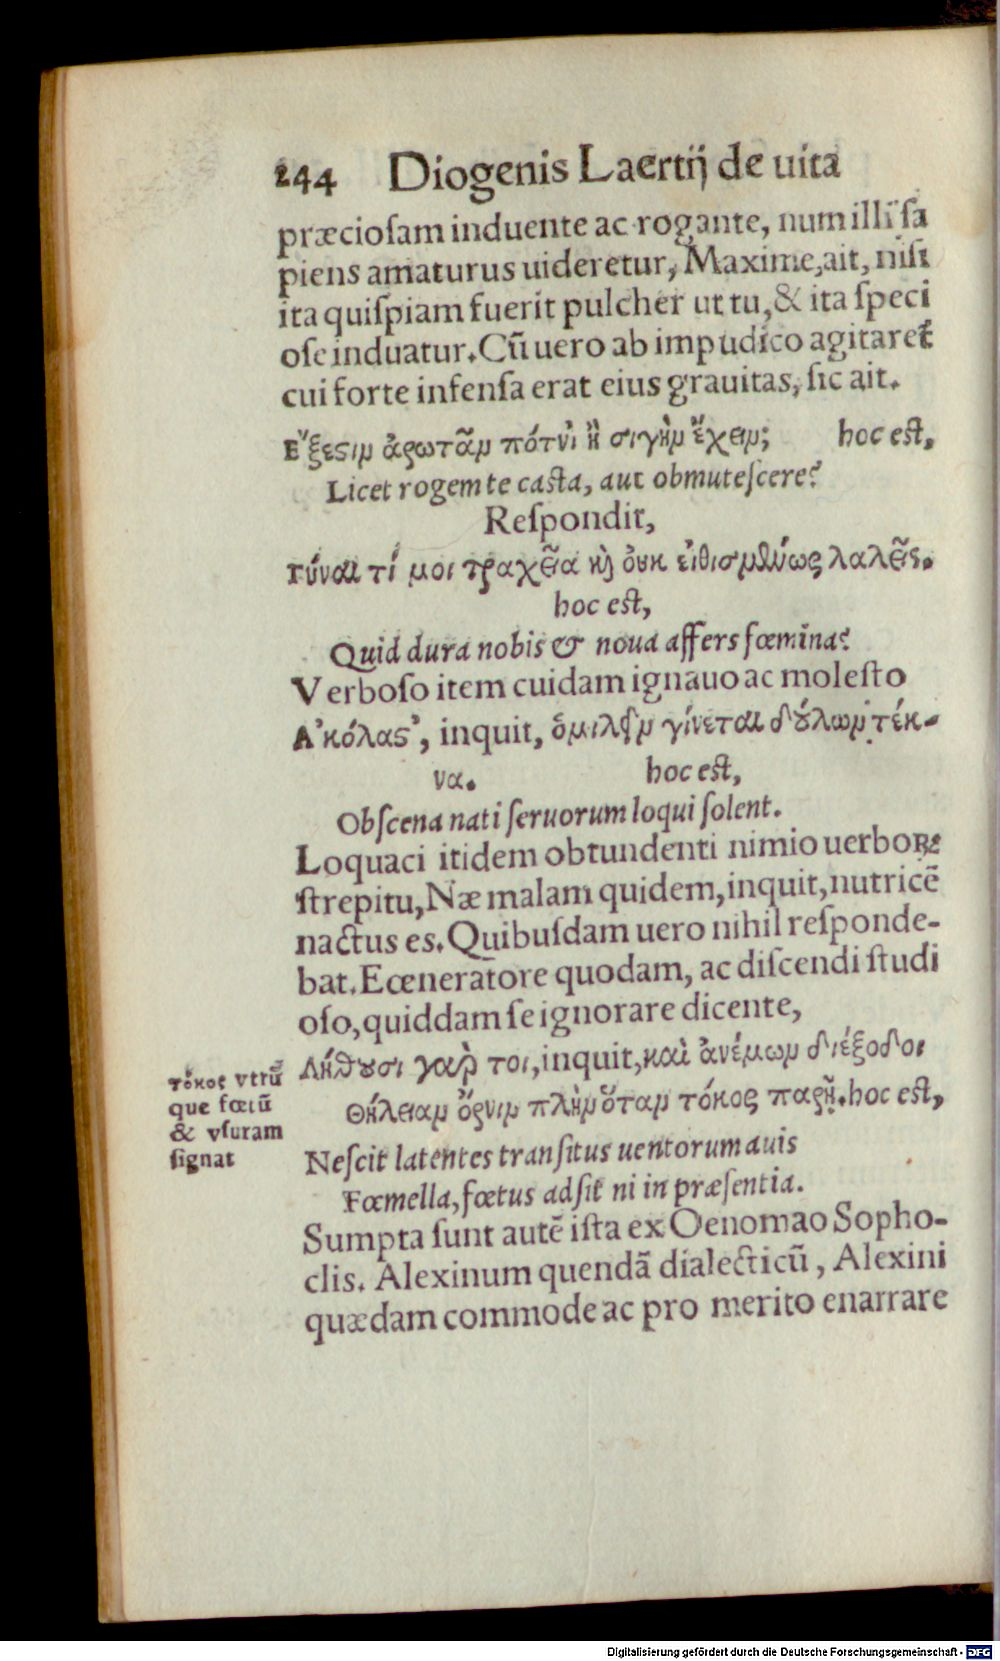 244 Diogenis Laertij de uita
præciosam induente ac rogante, num illi sa
piens amaturus uideretur, Maxime, ait, nisi
ita quispiam fuerit pulcher ut tu, & ita speci
ose induatur. Cũ uero ab impudico agitaret̃
cui forte infensa erat eius grauitas, sic ait.
Ε῎ξεϛιμ ἀρωτᾶμ πότνι ἢ σιγὴμ ἔχειμ; hoc est,
Licet rogem te casta, aut obmutescere?
Respondit,
Γύναι τί μοι τραχεῖα κὶ οὐκ εἰθισμένως λαλεῖς.
hoc est,
Quid dura nobis & noua affers fœmina?
Verboso item cuidam ignauo ac molesto
Α᾿κόλαϛ᾿, inquit, ὁμιλεῖμ γίνεται δούλωμ τέκ-
να. hoc est,
Obscena nati seruorum loqui solent.
Loquaci itidem obtundenti nimio uerboꝝ
strepitu, Næ malam quidem, inquit, nutricẽ
nactus es. Quibusdam uero nihil responde-
bat. Eœneratore quodam, ac discendi studi
oso, quiddam se ignorare dicente,
Λήθουσι γαρ τοι, inquit, καὶ ἀνέμωμ διέξοδοι
Θήλειαμ ὄρνιμ πλὴμ ὅταμ τόκος παρῇ. hoc est,
τόκος vtrũ
que fœtũ
& vsuram
signat
Nescit latentes transitus uentorum auis
Fœmella, fœtus adsit ni in præsentia.
Sumpta sunt autẽ ista ex Oenomao Sopho-
clis. Alexinum quendã dialecticũ, Alexini
quædam commode ac pro merito enarrare
Digitalisierung gefördert durch die Deutsche Forschungsgemeinschaft - DFG